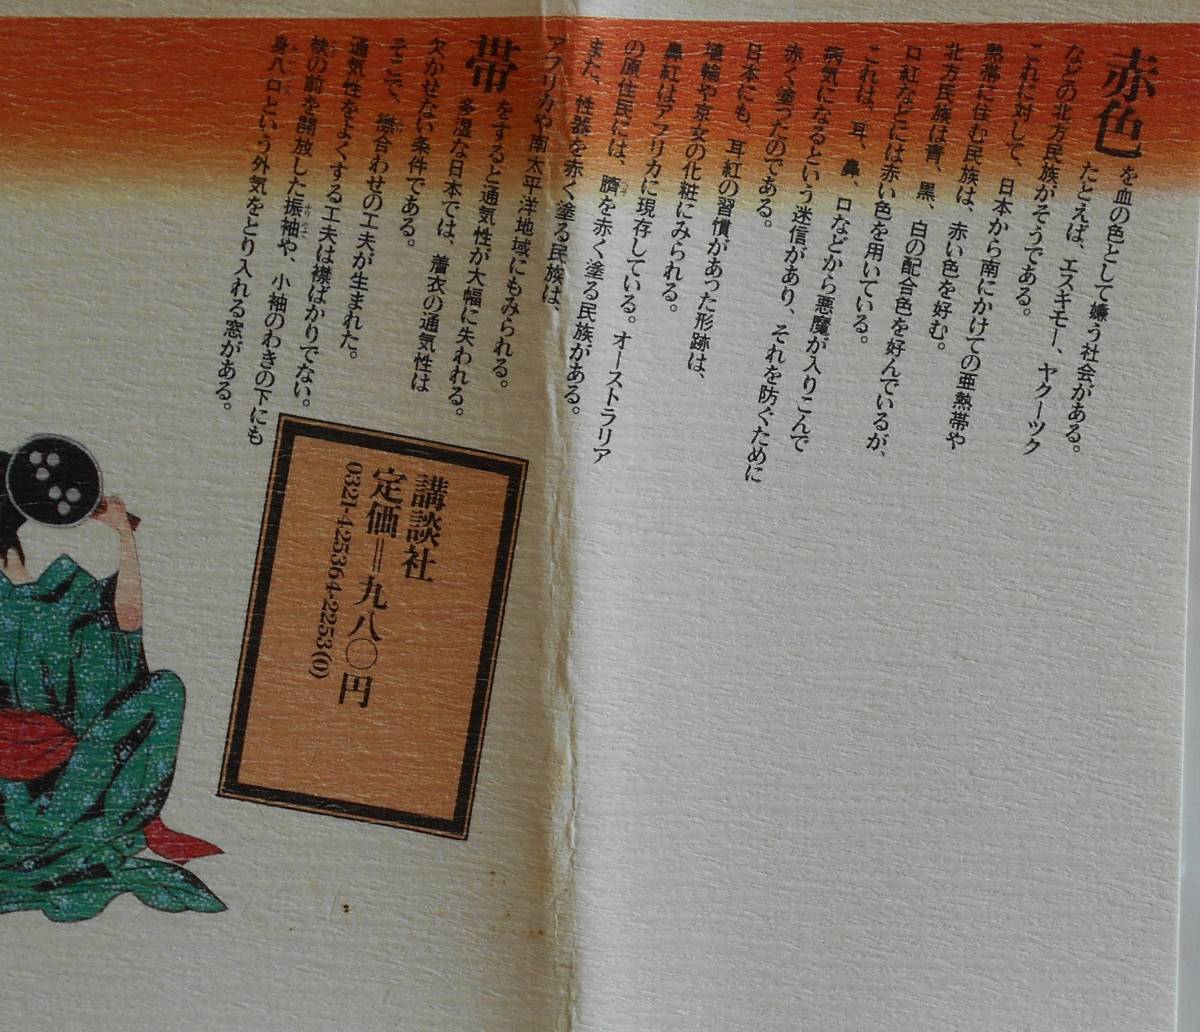 赤色を血の色として嫌う社会がある。
たとえば、エスキモー、ヤクーツク
などの北方民族がそうである。
これに対して、日本から南にかけての亜熱帯や
熱帯に住む民族は、赤い色を好む。
北方民族は青、黒、白の配合色を好んでいるが、
口紅などには赤い色を用いている。
これは、耳、鼻、口などから悪魔が入りこんで
病気になるという迷信があり、それを防ぐために
赤く塗ったのである。
日本にも、耳紅の習慣があった形跡は、
埴輪や京女の化粧にみられる。
鼻紅はアフリカに現存している。オーストラリア
の原住民には、臍を赤く塗る民族がある。
また、性器を赤く塗る民族は、
アフリカや南太平洋地域にもみられる。
帯をすると通気性が大幅に失われる。
多湿な日本では、着衣の通気性は
欠かせない条件である。
そこで、襟合わせの工夫が生まれた。
通気性をよくする工夫は襟ばかりでない。
褄の前を開放した振袖や、小袖のわきの下にも
身八口という外気をとり入れる窓がある。
講談社
定価=九八〇円
0321-425364-2253(0)